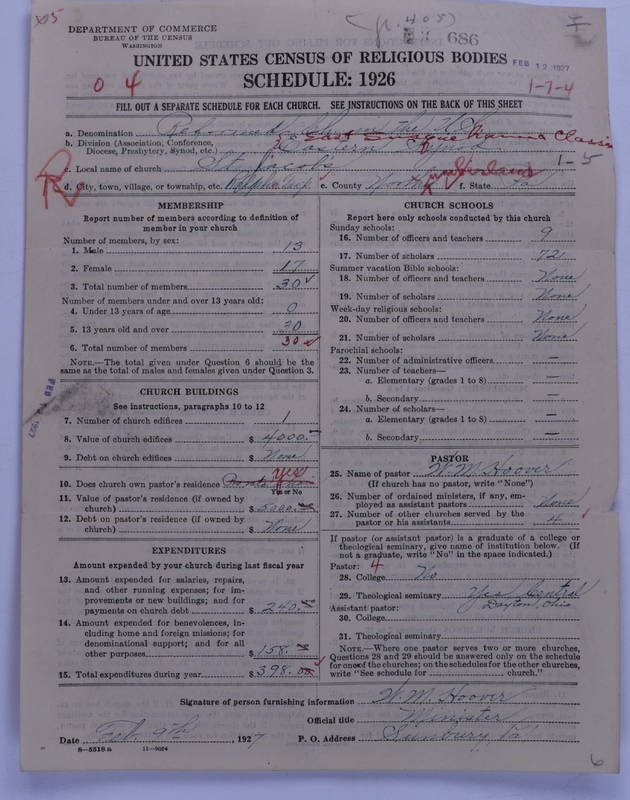 x05
(p. 405)
686
FEB 12 1927
DEPARTMENT OF COMMERCE
BUREAU OF THE CENSUS
WASHINGTON
UNITED STATES CENSUS OF RELIGIOUS BODIES
SCHEDULE: 1926
0 4
1-7-4
FILL OUT A SEPARATE SCHEDULE FOR EACH CHURCH. SEE INSTRUCTIONS ON THE BACK OF THIS SHEET
a. Denomination Reformed Church in the U.S.
b. Division (Association, Conference, Diocese, Presbytery, Synod, etc.) Eastern Synod
Classis
1-5
c. Local name of church St. Jacobs
d. City, town, village, or township, etc.
e. County
f. State Pa
MEMBERSHIP
Report number of members according to definition of
member in your church
Number of members, by sex:
1. Male 13
2. Female 17
3. Total number of members 30
Number of members under and over 13 years old:
4. Under 13 years of age 0
5. 13 years old and over 30
6. Total number of members 30
NOTE.—The total given under Question 6 should be the
same as the total of males and females given under Question 3.
FEB 1927
CHURCH BUILDINGS
See instructions, paragraphs 10 to 12
7. Number of church edifices 1
8. Value of church edifices $ 4000.
9. Debt on church edifices $ None
10. Does church own pastor's residence yes
Yes or No
11. Value of pastor's residence (if owned by
church) $ 5000.
12. Debt on pastor's residence (if owned by
church) $ None
EXPENDITURES
Amount expended by your church during last fiscal year
13. Amount expended for salaries, repairs,
and other running expenses; for im-
provements or new buildings; and for
payments on church debt $ 240.
14. Amount expended for benevolences, in-
cluding home and foreign missions; for
denominational support; and for all
other purposes $ 158.
15. Total expenditures during year $ 398.00
CHURCH SCHOOLS
Report here only schools conducted by this church
Sunday schools:
16. Number of officers and teachers 9
17. Number of scholars 72
Summer vacation Bible schools:
18. Number of officers and teachers None
19. Number of scholars None
Week-day religious schools:
20. Number of officers and teachers None
21. Number of scholars None
Parochial schools:
22. Number of administrative officers —
23. Number of teachers—
a. Elementary (grades 1 to 8) —
b. Secondary —
24. Number of scholars—
a. Elementary (grades 1 to 8) —
b. Secondary —
PASTOR
25. Name of pastor W. M. Hoover
(If church has no pastor, write "None")
26. Number of ordained ministers, if any, em-
ployed as assistant pastors None
27. Number of other churches served by the
pastor or his assistants 4
If pastor (or assistant pastor) is a graduate of a college or
theological seminary, give name of institution below. (If
not a graduate, write "No" in the space indicated.)
Pastor: 4
28. College No
29. Theological seminary Yes Central
Dayton, Ohio
Assistant pastor:
30. College
31. Theological seminary
NOTE.—Where one pastor serves two or more churches,
Questions 28 and 29 should be answered only on the schedule
for one of the churches; on the schedules for the other churches,
write "See schedule for church."
Signature of person furnishing information W. M. Hoover
Official title Minister
Date Feb. 9th, 1927 P. O. Address Sunbury, Pa
8—5518 a 11—9064
6